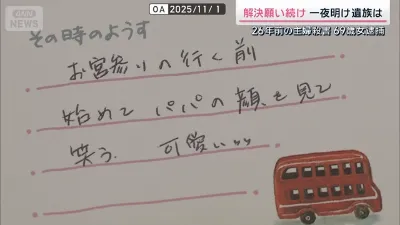 ANN NEWS
OA 2025/11/1
解決願い続け 一夜明け遺族は
26年前の主婦殺害 69歳女逮捕
その時のようす
お宮参りの行く前
始めて パパの顔を見て
笑う 可愛いッッ